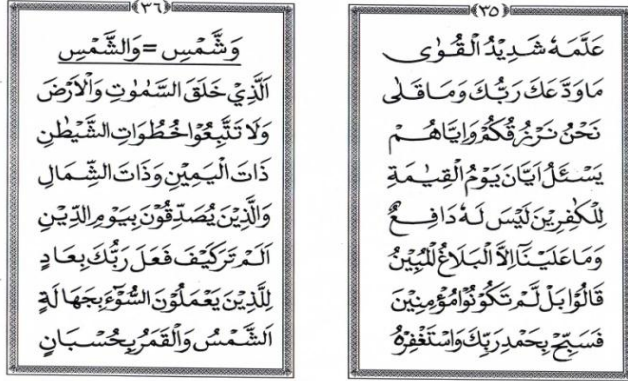 ﴿٣٥﴾
عَلَّمَهٗ شَدِيْدُ الْقُوٰى
مَا وَدَّعَكَ رَبُّكَ وَمَا قَلٰى
نَحْنُ نَرْزُقُكُمْ وَاِيَّاهُمْ
يَسْـَٔلُ اَيَّانَ يَوْمُ الْقِيٰمَةِ
لِلْكٰفِرِيْنَ لَيْسَ لَهٗ دَافِعٌ
وَمَا عَلَيْنَآ اِلَّا الْبَلَاغُ الْمُبِيْنُ
قَالُوْا بَلْ لَّمْ تَكُوْنُوْا مُؤْمِنِيْنَ
فَسَبِّحْ بِحَمْدِ رَبِّكَ وَاسْتَغْفِرْهُ
﴿٣٦﴾
وَشَّمْسِ = وَالشَّمْسِ
اَلَّذِيْ خَلَقَ السَّمٰوٰتِ وَالْاَرْضَ
وَلَا تَتَّبِعُوْا خُطُوَاتِ الشَّيْطٰنِ
ذَاتَ الْيَمِيْنِ وَذَاتَ الشِّمَالِ
وَالَّذِيْنَ يُصَدِّقُوْنَ بِيَوْمِ الدِّيْنِ
اَلَمْ تَرَ كَيْفَ فَعَلَ رَبُّكَ بِعَادٍ
لِلَّذِيْنَ يَعْمَلُوْنَ السُّوْٓءَ بِجَهَالَةٍ
اَلشَّمْسُ وَالْقَمَرُ بِحُسْبَانٍ